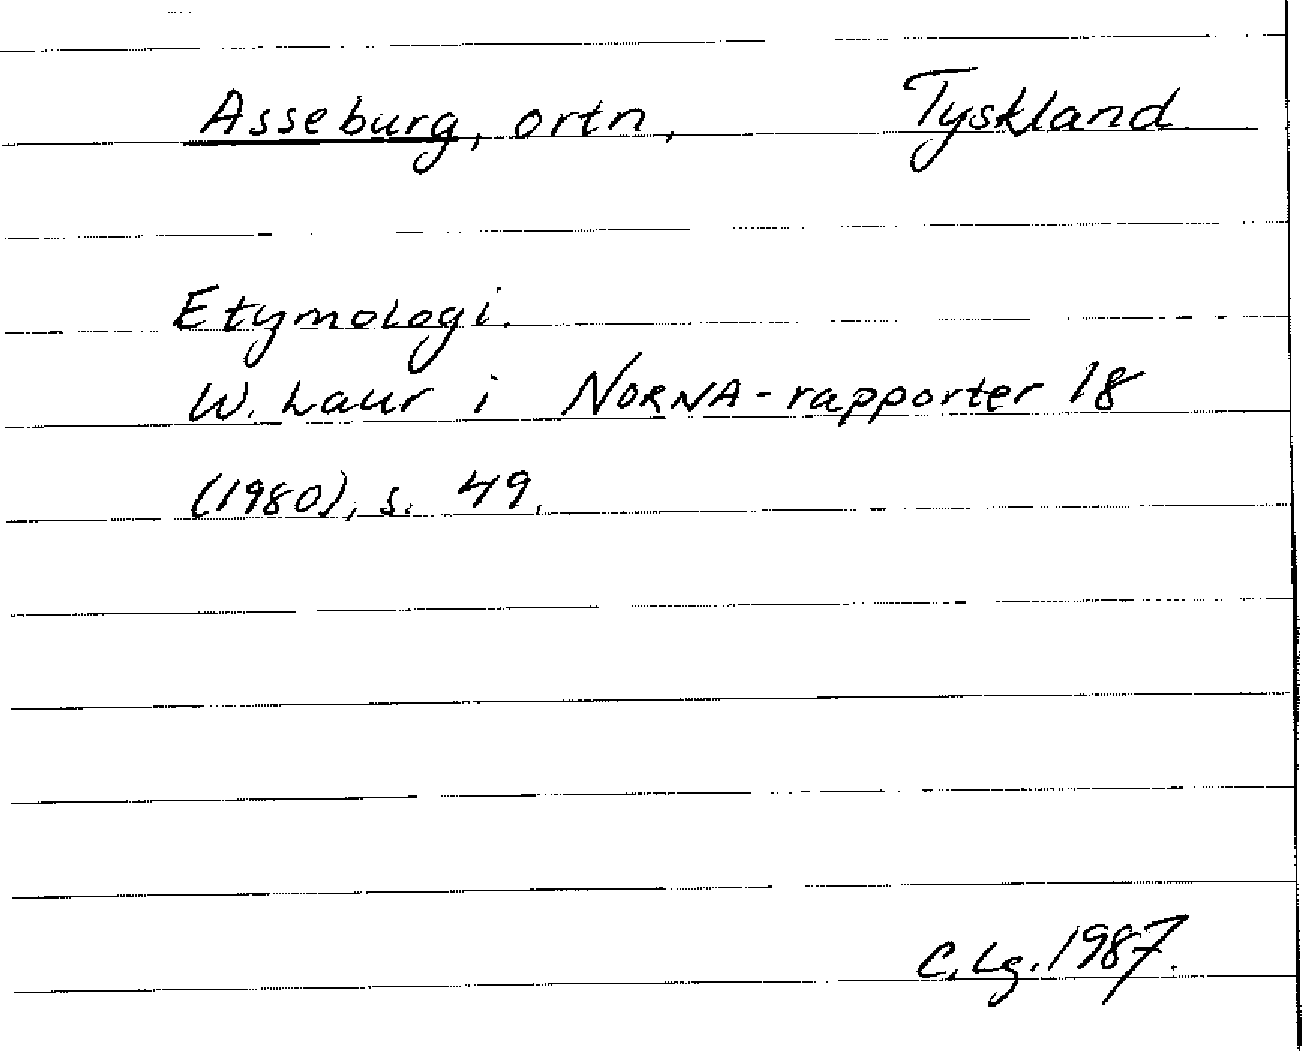 Asseburg, ortn, Tyskland
Etymologi.
W. Laur i NORNA-rapporter 18
(1980), s. 49.
C. Lg. 1987.